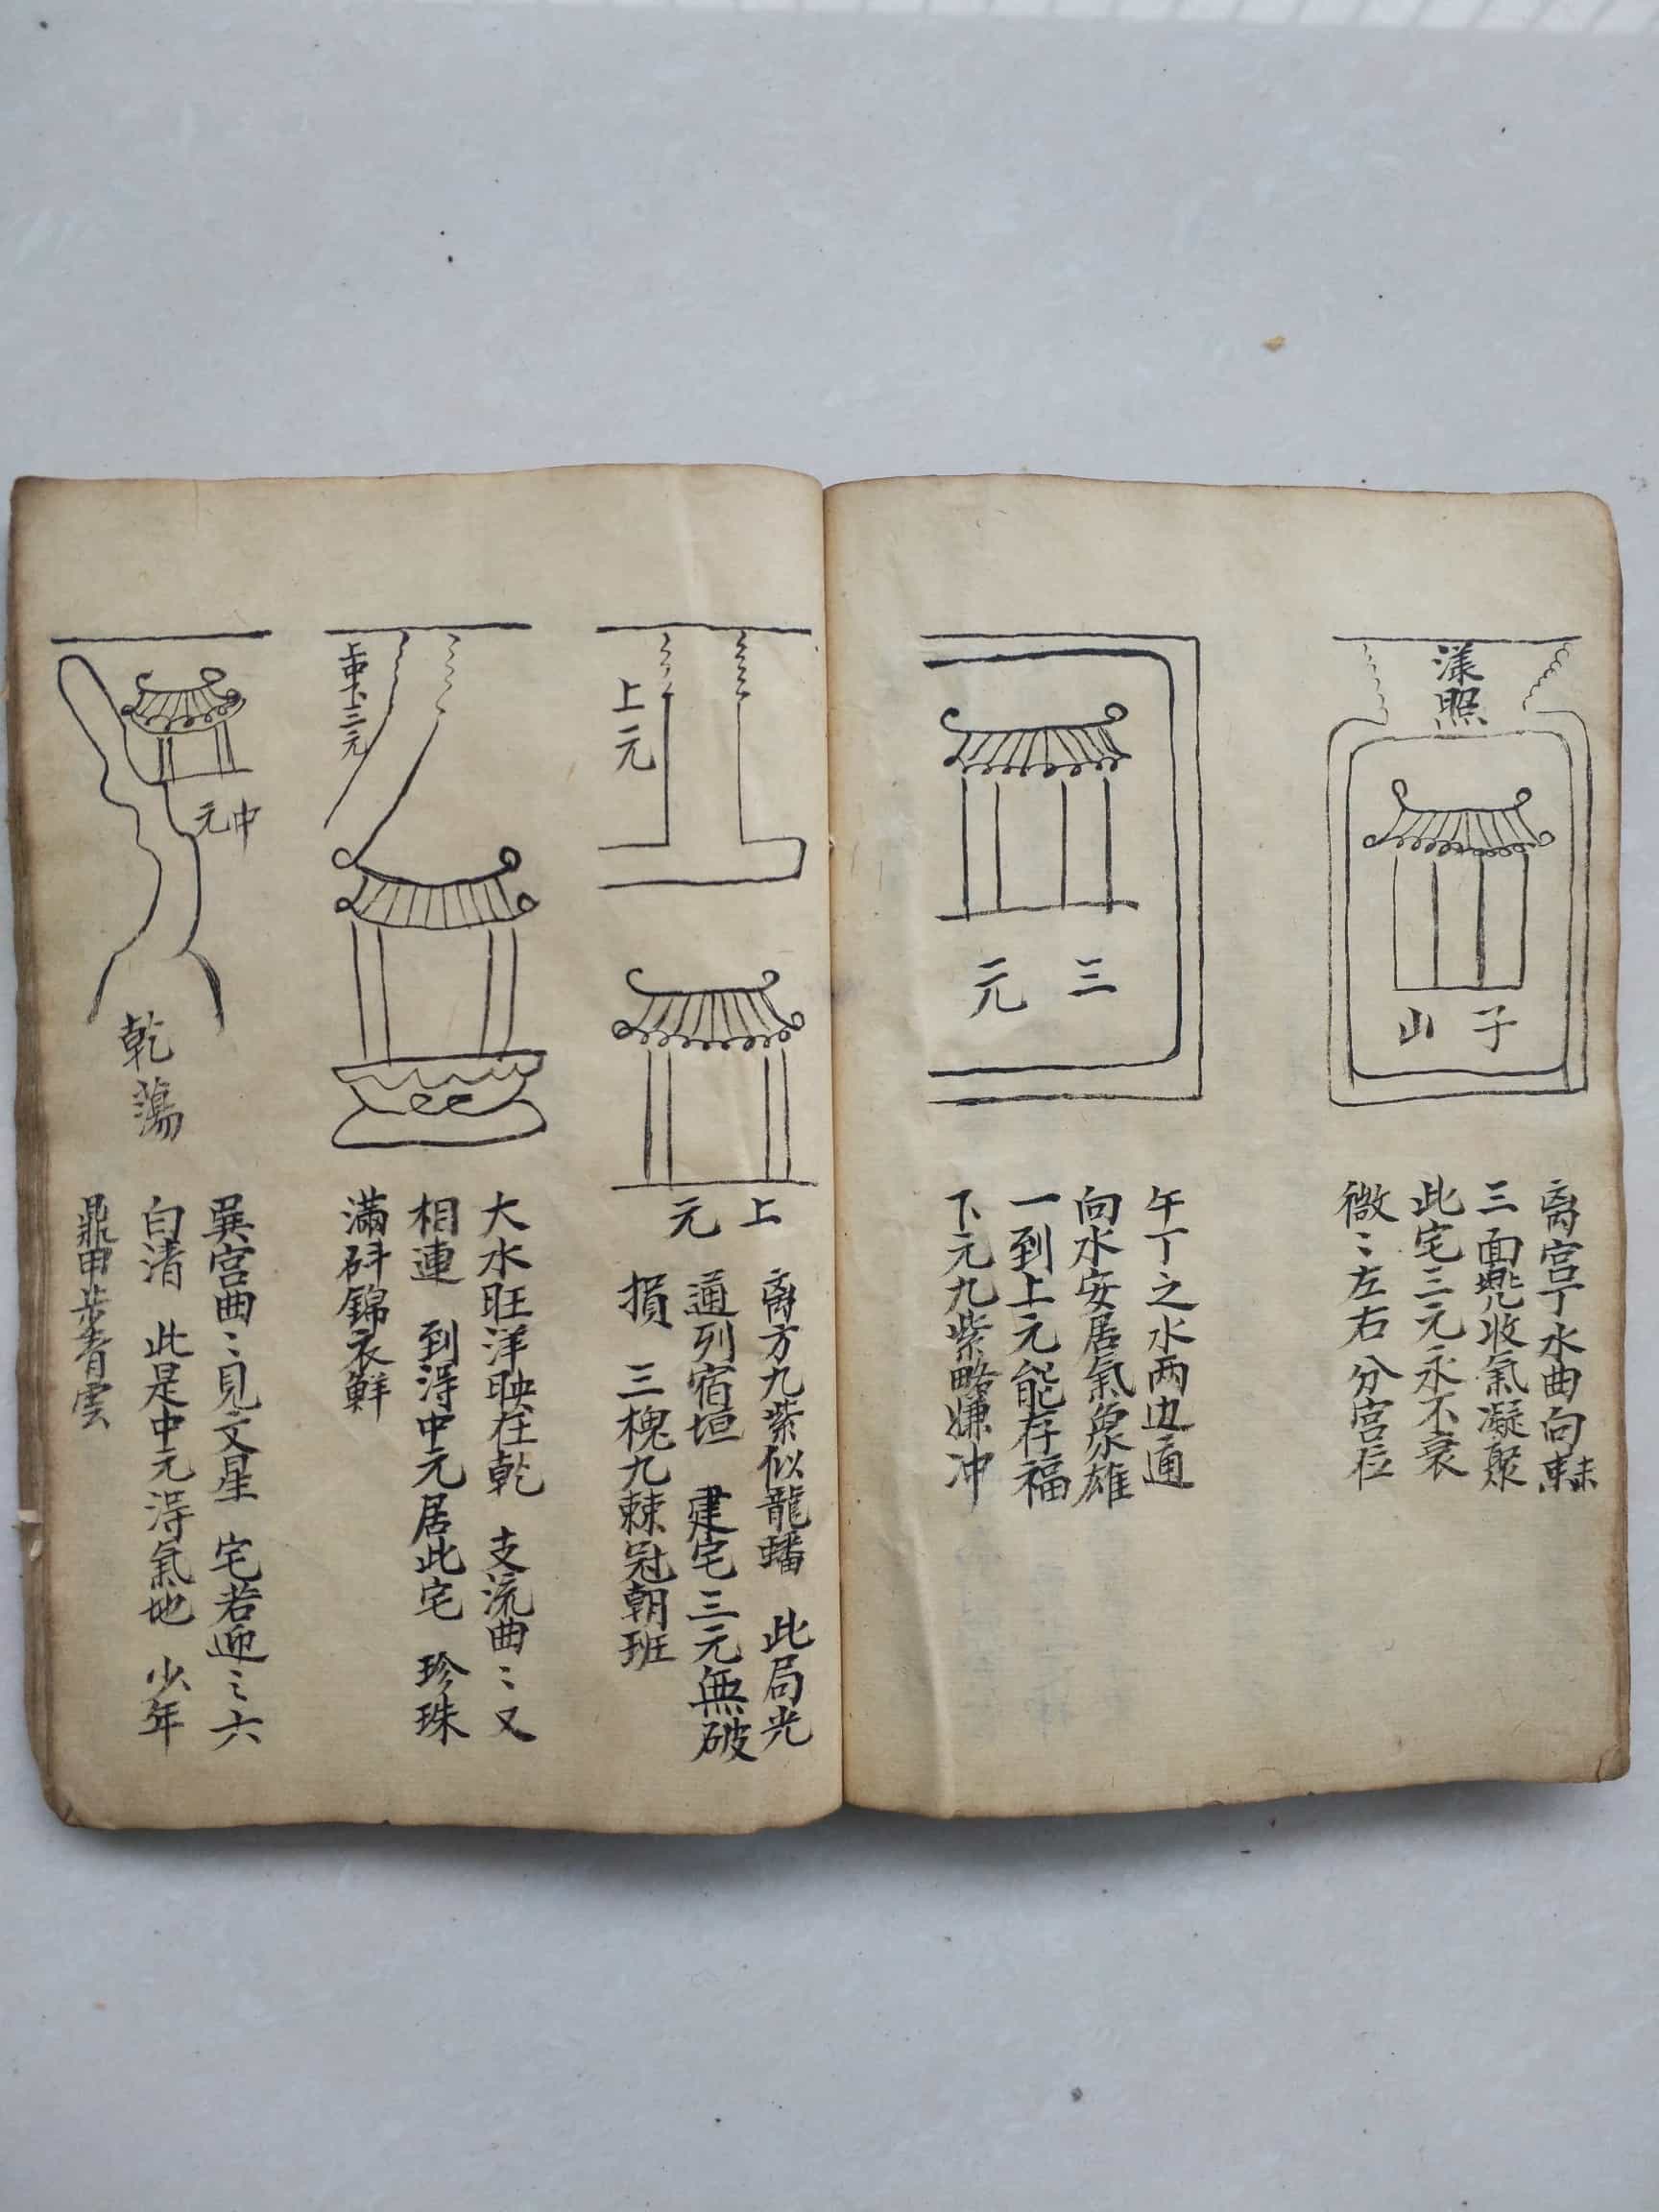 漾照
子山
离宮丁水曲向
三面兠收氣凝聚
此宅三元永不衰
微〻左右分宮位
三元
午丁之水两边通
向水安居氣象雄
一到上元能存福
下元九紫略嫌冲
上元
上元
离方九紫似龍蟠 此局光
通列宿垣 建宅三元無破
損 三槐九棘冠朝班
上中下三元
大水旺洋映在乾 支流曲〻又
相連 到淂中元居此宅 珍珠
滿斗錦衣鮮
中元
乾蕩
巽宮曲〻見文星 宅若迎〻六
白清 此是中元淂氣地 少年
鼎甲步青雲